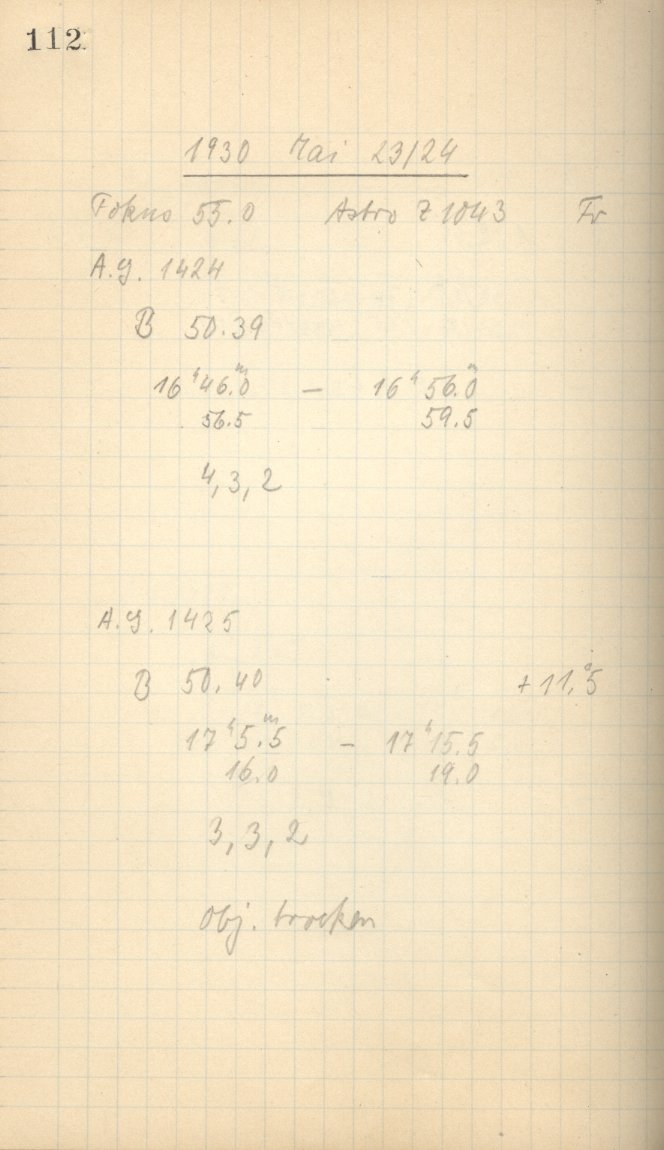 112
1930 Mai 23/24
Fokus 55.0 Astro Z 1043 Fr
A.G. 1424
B 50.39
16ʰ46.ᵐ0 — 16ʰ56.ᵐ0
56.5 59.5
4, 3, 2
A.G. 1425
B 50.40 +11.°5
17ʰ5.ᵐ5 — 17ʰ15.5
16.0 19.0
3, 3, 2
Obj. trocken